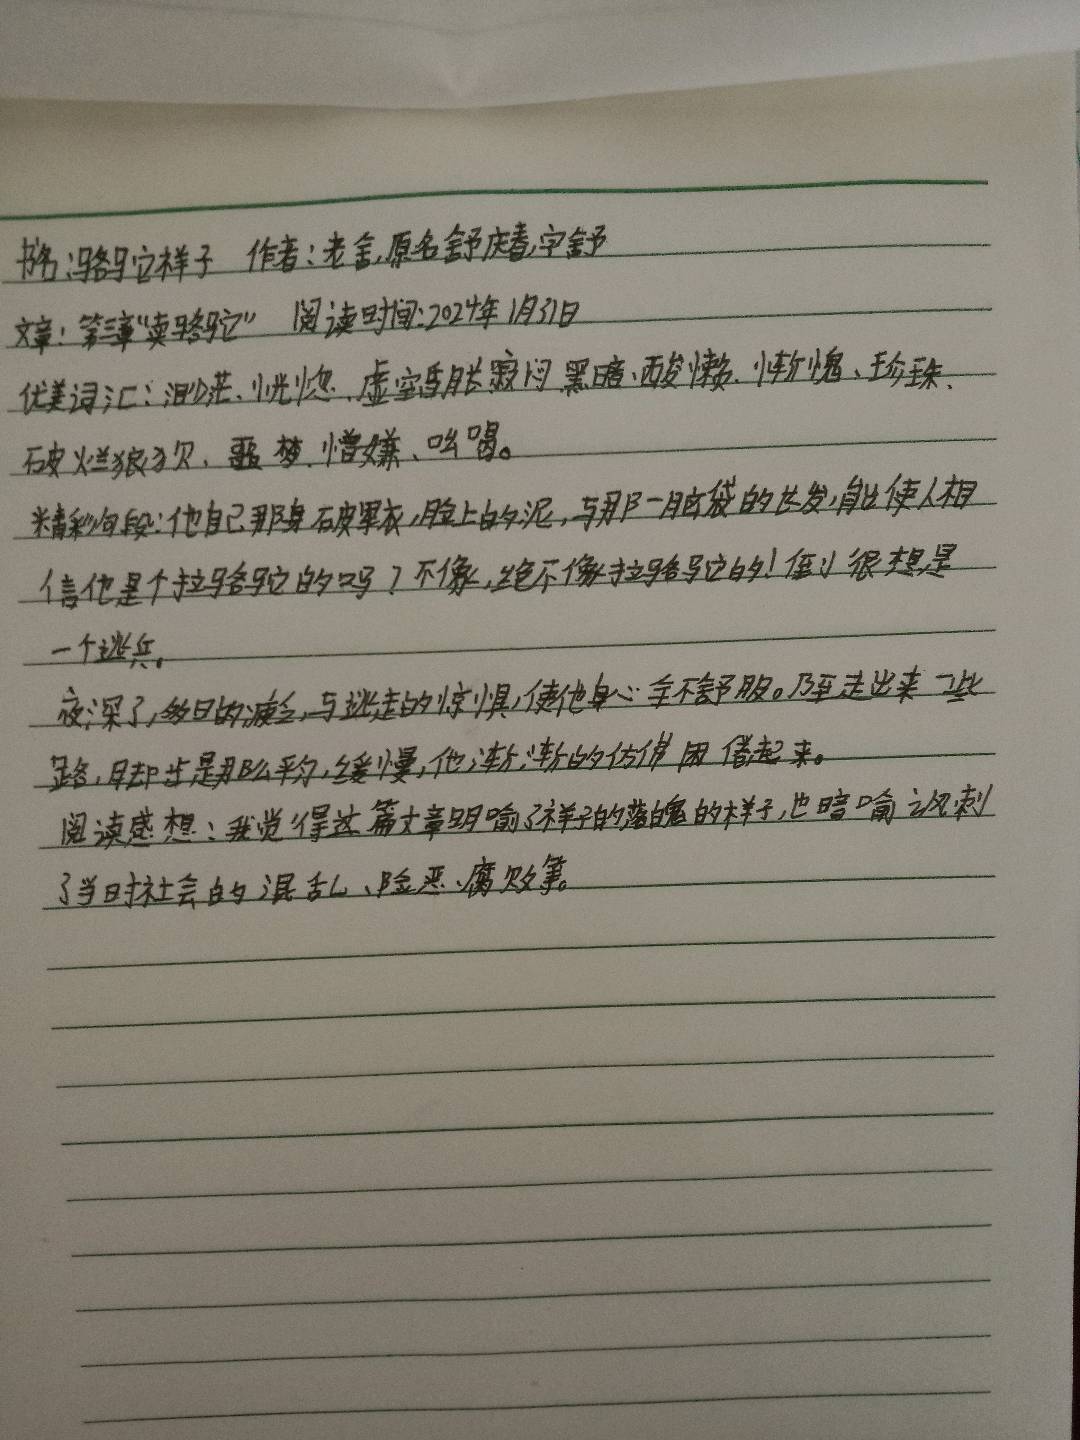 书名:骆驼样子 作者:老舍,原名舒庆春,字舒
文章:第三章"卖骆驼" 阅读时间:2024年1月31日
优美词汇:渺茫、恍惚、虚空、寂闷、黑暗、酸懒、惭愧、珍珠、
破烂狼狈、噩梦、憎嫌、吆喝。
精彩句段:他自己那身破军衣,脸上的泥,与那一脑袋的长发,能使人相
信他是个拉骆驼的吗?不像,绝不像拉骆驼的!倒很想是
一个逃兵。
夜深了,多日的疲乏,与逃走的惊惧,使他身心全不舒服。乃至走出来一些
路,脚步是那么平匀,缓慢,他渐渐的仿佛困倦起来。
阅读感想:我觉得这篇文章明喻了祥子的落魄的样子,也暗喻讽刺
了当时社会的混乱、险恶、腐败等。